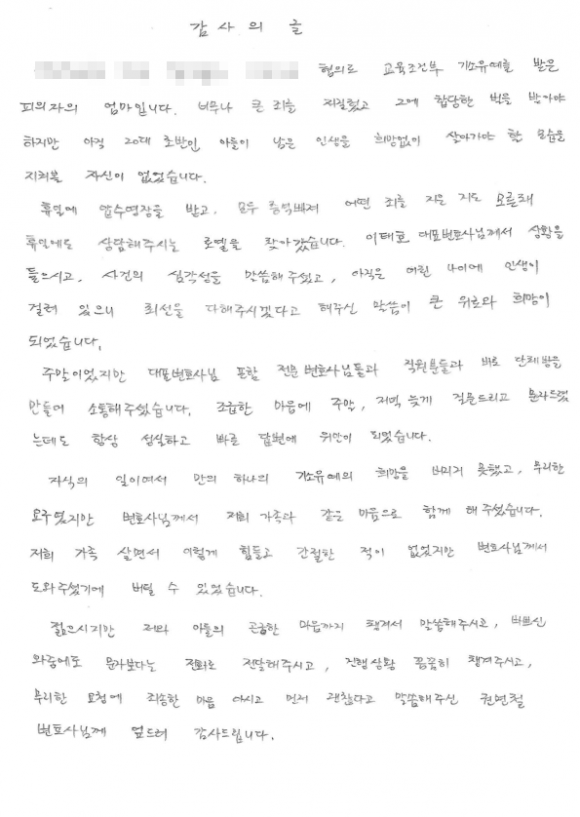 감사의 글
혐의로 교육조건부 기소유예를 받은
피의자의 엄마입니다. 너무나 큰 죄를 저질렀고 그에 합당한 벌을 받아야
하지만 아직 20대 초반인 아들이 남은 인생을 희망없이 살아가야 할 모습을
지켜볼 자신이 없었습니다.
휴일에 압수영장을 받고, 모두 충격빠져 어떤 죄를 지은 지도 모른채
휴일에도 상담해주시는 로펌을 찾아갔습니다. 이태호 대표변호사님께서 상황을
들으시고, 사건의 심각성을 말씀해주셨고, 아직은 어린 나이에 인생이
걸려 있으니 최선을 다해주시겠다고 해주신 말씀이 큰 위로와 희망이
되었습니다.
주말이었지만 대표변호사님 포함 전문변호사님들과 직원분들과 바로 단체방을
만들어 소통해주셨습니다. 조급한 마음에 주말, 저녁 늦게 질문드리고 문자드렸
는데도 항상 성실하고 빠른 답변에 위안이 되었습니다.
자식의 일이여서 만의 하나의 기소유예의 희망을 버리지 못했고, 무리한
요구였지만 변호사님께서 저희 가족과 같은 마음으로 함께 해주셨습니다.
저희 가족 살면서 이렇게 힘들고 간절한 적이 없었지만 변호사님께서
도와주셨기에 버틸 수 있었습니다.
젊으시지만 저와 아들의 궁금한 마음까지 챙겨서 말씀해주시고, 바쁘신
와중에도 문자보다는 전화로 전달해주시고, 진행상황 꼼꼼히 챙겨주시고,
무리한 요청에 죄송한 마음 아시고 먼저 괜찮다고 말씀해주신 권연철
변호사님께 엎드려 감사드립니다.